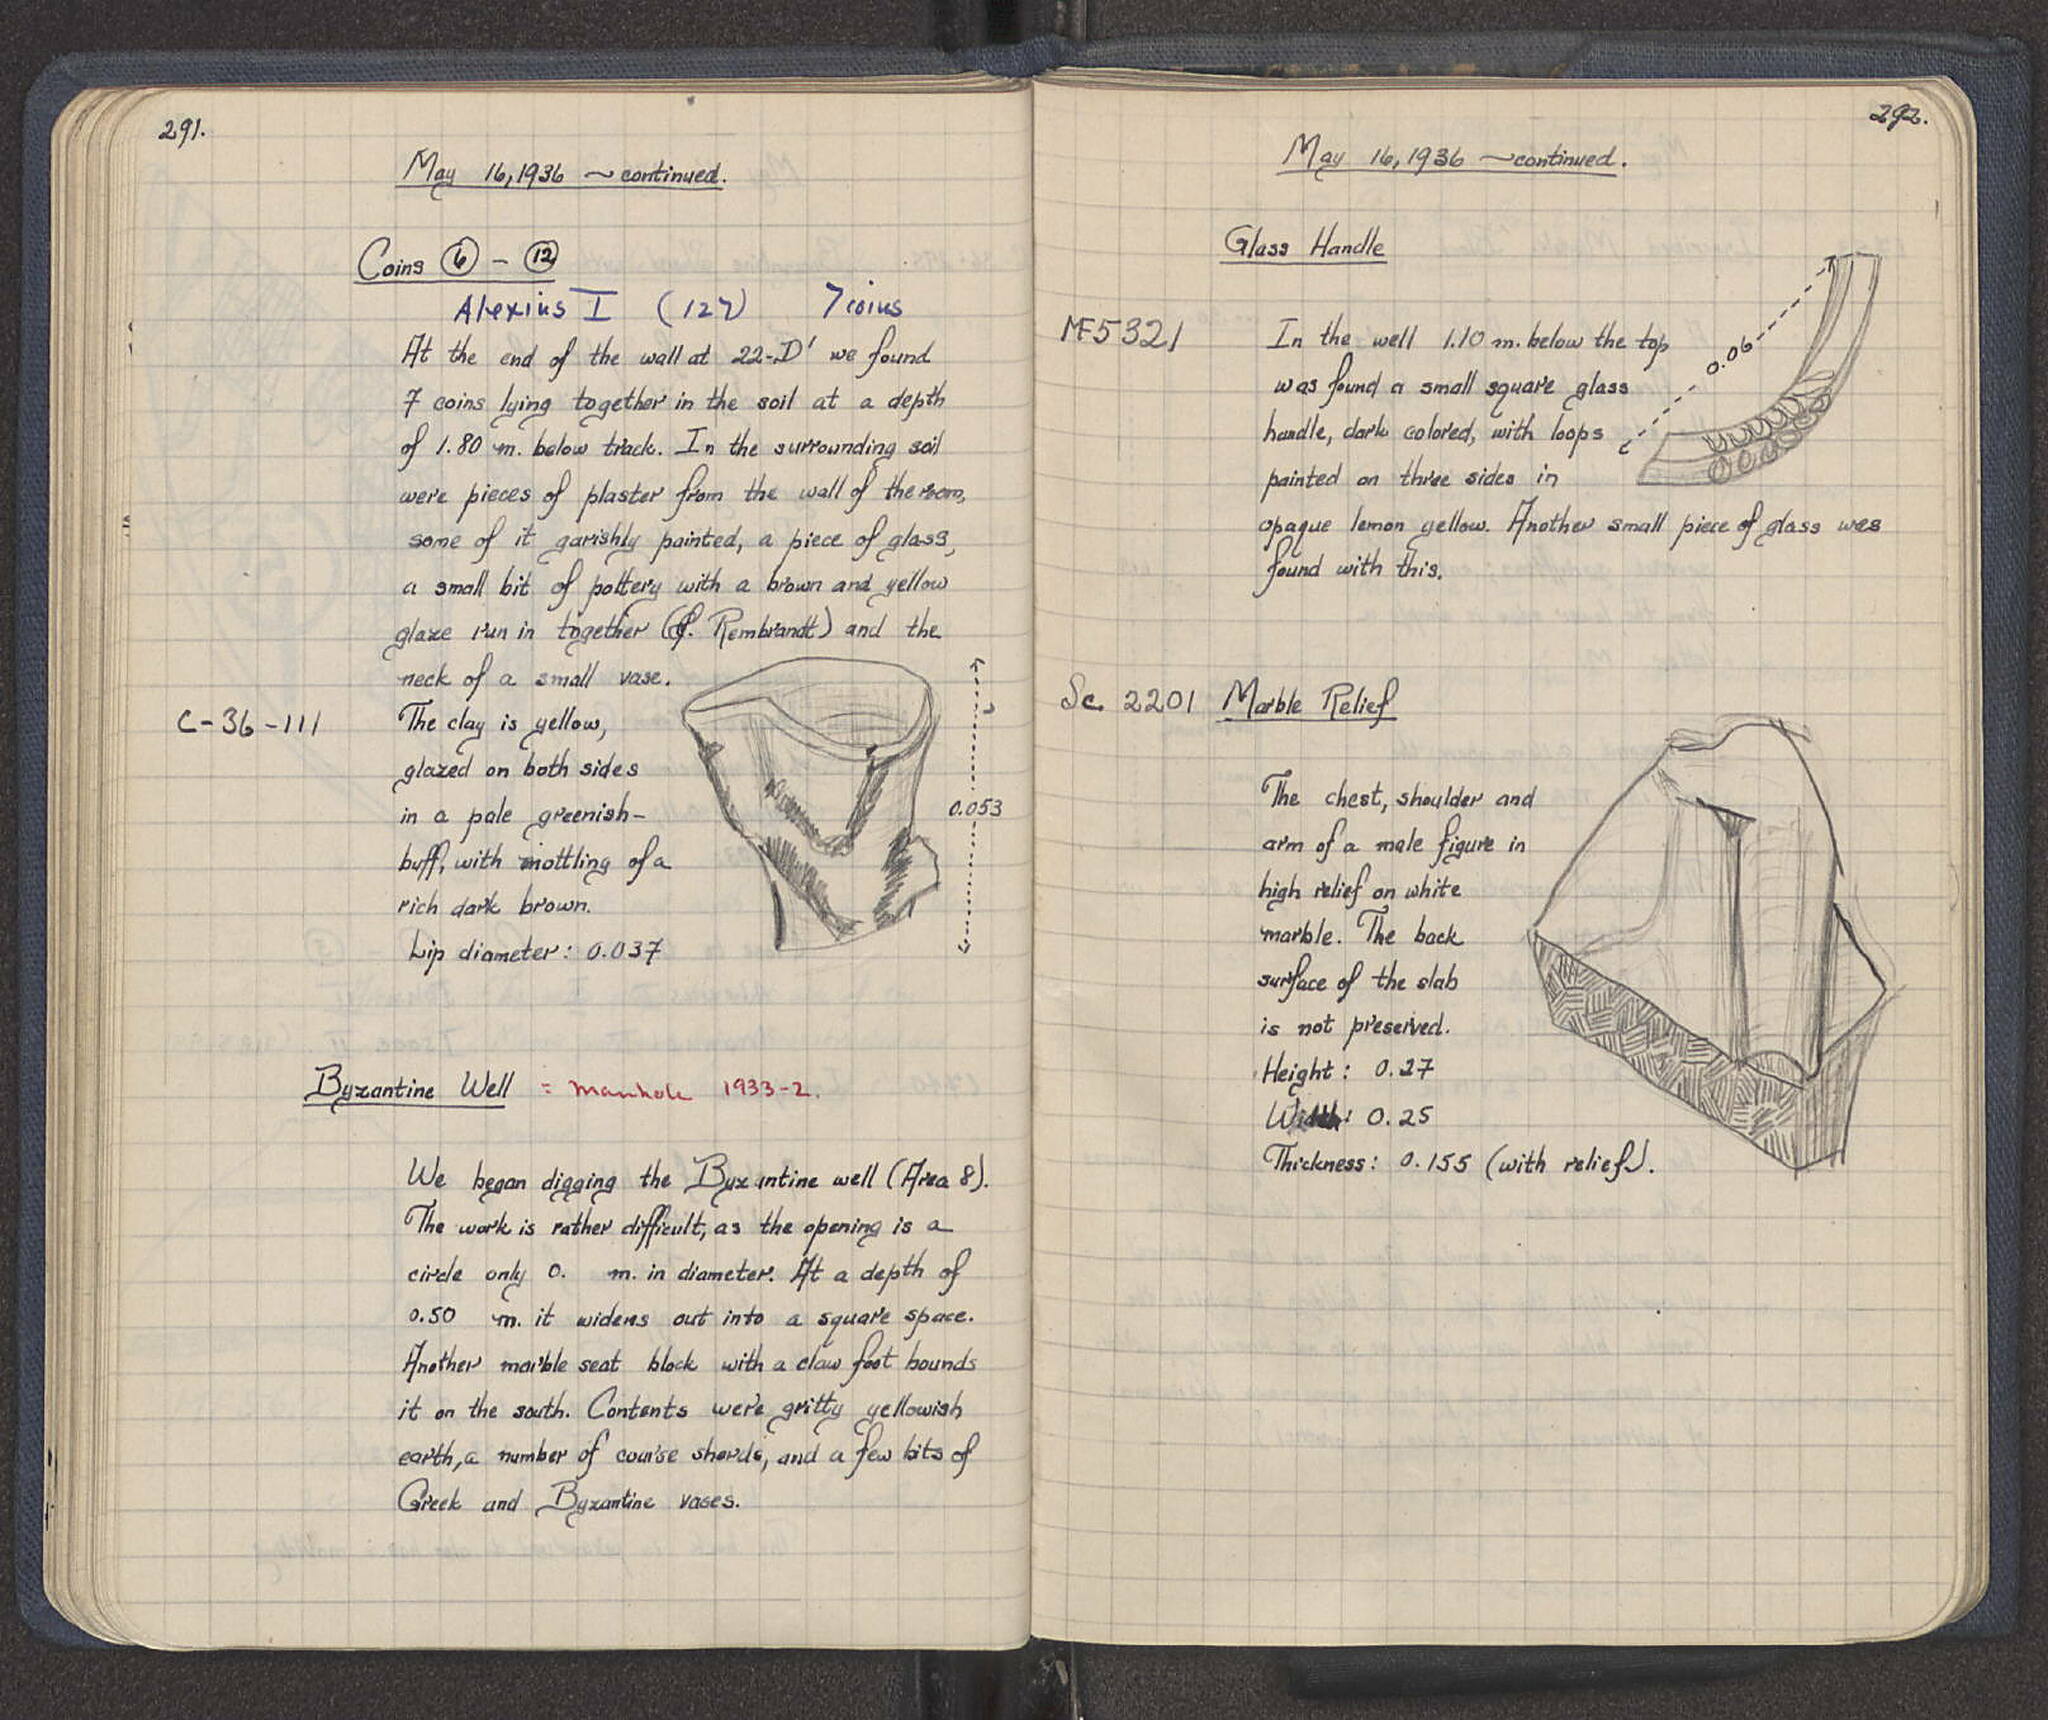 291.
May 16, 1936 ~ continued.
Coins ⑥ - ⑫
Alexius I (127) 7 coins
At the end of the wall at 22-D' we found
7 coins lying together in the soil at a depth
of 1.80 m. below track. In the surrounding soil
were pieces of plaster from the wall of the room,
some of it garishly painted, a piece of glass,
a small bit of pottery with a brown and yellow
glaze run in together (cf. Rembrandt) and the
neck of a small vase.
C-36-111 The clay is yellow,
glazed on both sides
in a pale greenish-
buff, with mottling of a
rich dark brown.
Lip diameter: 0.037
0.053
Byzantine Well = Manhole 1933-2.
We began digging the Byzantine well (Area 8).
The work is rather difficult, as the opening is a
circle only 0. m. in diameter. At a depth of
0.50 m. it widens out into a square space.
Another marble seat block with a claw foot bounds
it on the south. Contents were gritty yellowish
earth, a number of coarse sherds, and a few bits of
Greek and Byzantine vases.
292.
May 16, 1936 ~ continued.
Glass Handle
MF5321 In the well 1.10 m. below the top
was found a small square glass
handle, dark colored, with loops
painted on three sides in
opaque lemon yellow. Another small piece of glass was
found with this.
0.06
Sc. 2201 Marble Relief
The chest, shoulder and
arm of a male figure in
high relief on white
marble. The back
surface of the slab
is not preserved.
Height: 0.27
Width: 0.25
Thickness: 0.155 (with relief).